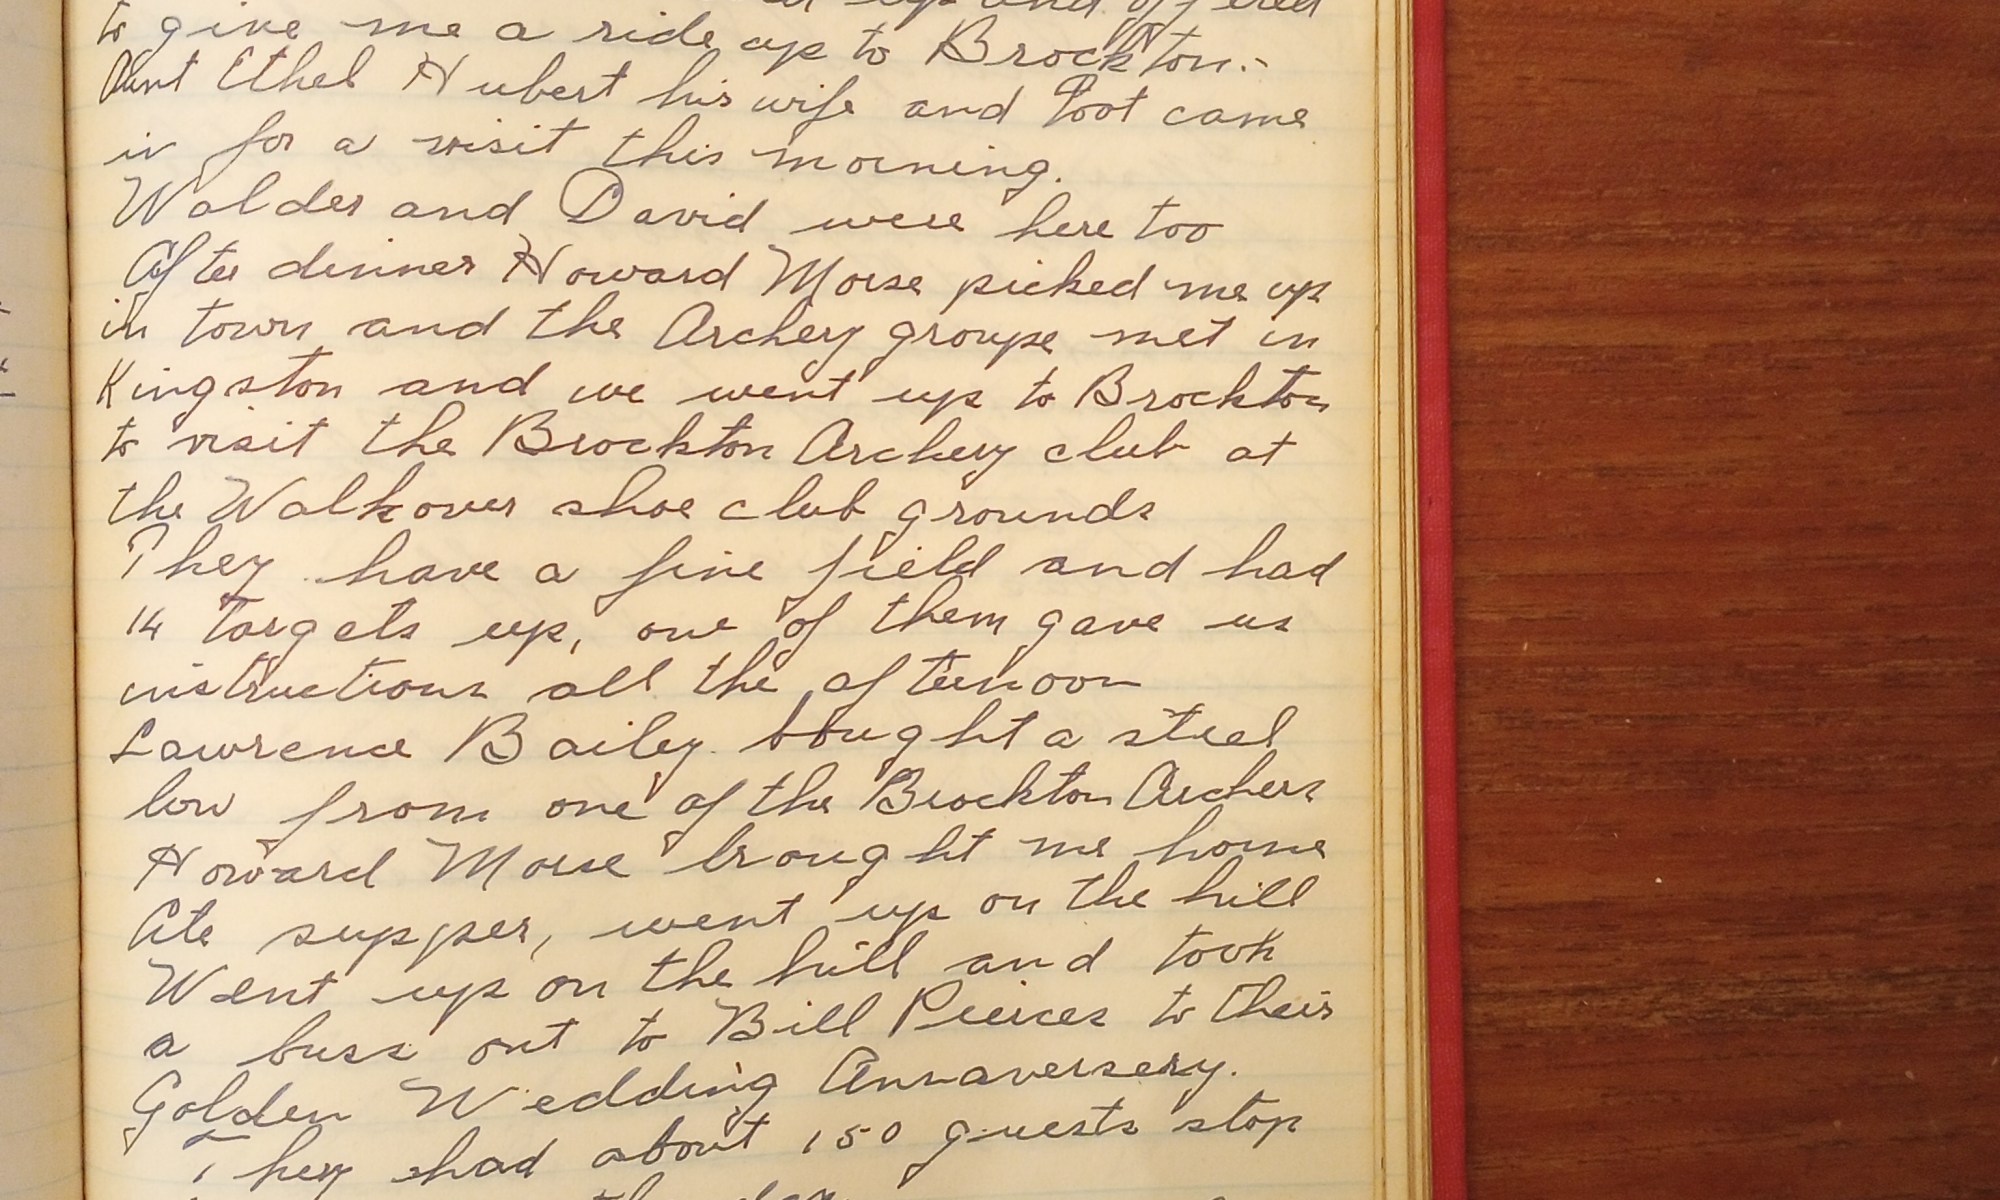 up and offered
to give me a ride up to Brockton.-
Aunt Ethel Hubert his wife and Poot came
in for a visit this morning.
Walder and David were here too
After dinner Howard Morse picked me up
in town and the Archery groupe met in
Kingston and we went up to Brockton
to visit the Brockton Archery club at
the Walkover shoe club grounds
They have a fine field and had
14 targets up, one of them gave us
instructions all the afternoon
Lawrence Bailey bought a steel
bow from one of the Brockton Archers
Howard Morse brought me home
Ate supper, went up on the hill
Went up on the hill and took
a buss out to Bill Pierces to their
Golden Wedding Annaversery.
They had about 150 guests stop